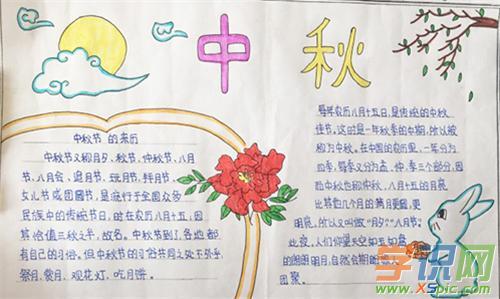 中秋
中秋节 的来历
中秋节又称月夕、秋节、仲秋节、八月
节、八月会、追月节、玩月节、拜月节、
女儿节或团圆节，是流行于全国众多
民族中的传统节日，时在农历八月十五，因
其恰值三秋之半，故名。中秋节到了，各地都
有自己的习俗。但中秋节的习俗共同之处不外乎
祭月、赏月、观花灯、吃月饼。
每年农历八月十五日，是传统的中秋
佳节。这时是一年秋季的中期，所以被
称为中秋。在中国的农历里，一年分为
四季，每季又分为孟、仲、季三个部分，因
而中秋也称仲秋。八月十五的月亮
比其他几个月的满月更圆，更
明亮，所以又叫做“月夕”“八月节”。
此夜，人们仰望天空如玉如
的朗朗明月，自然会期盼
团聚。
学课网
www.XSpic.com